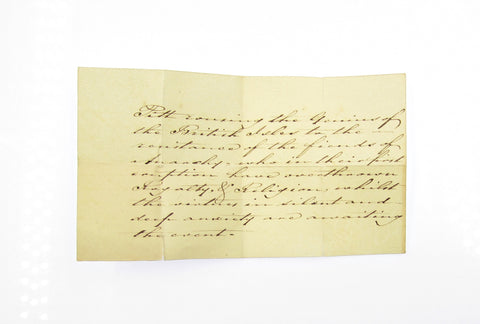 Pitt rousing the Genius of
the British Isles to the
resistance of the fiends of
Anarchy, who in their first
eruption have overthrown
Loyalty, & Religion, whilst
the virtues in silent and
deep anxiety are awaiting
the event.